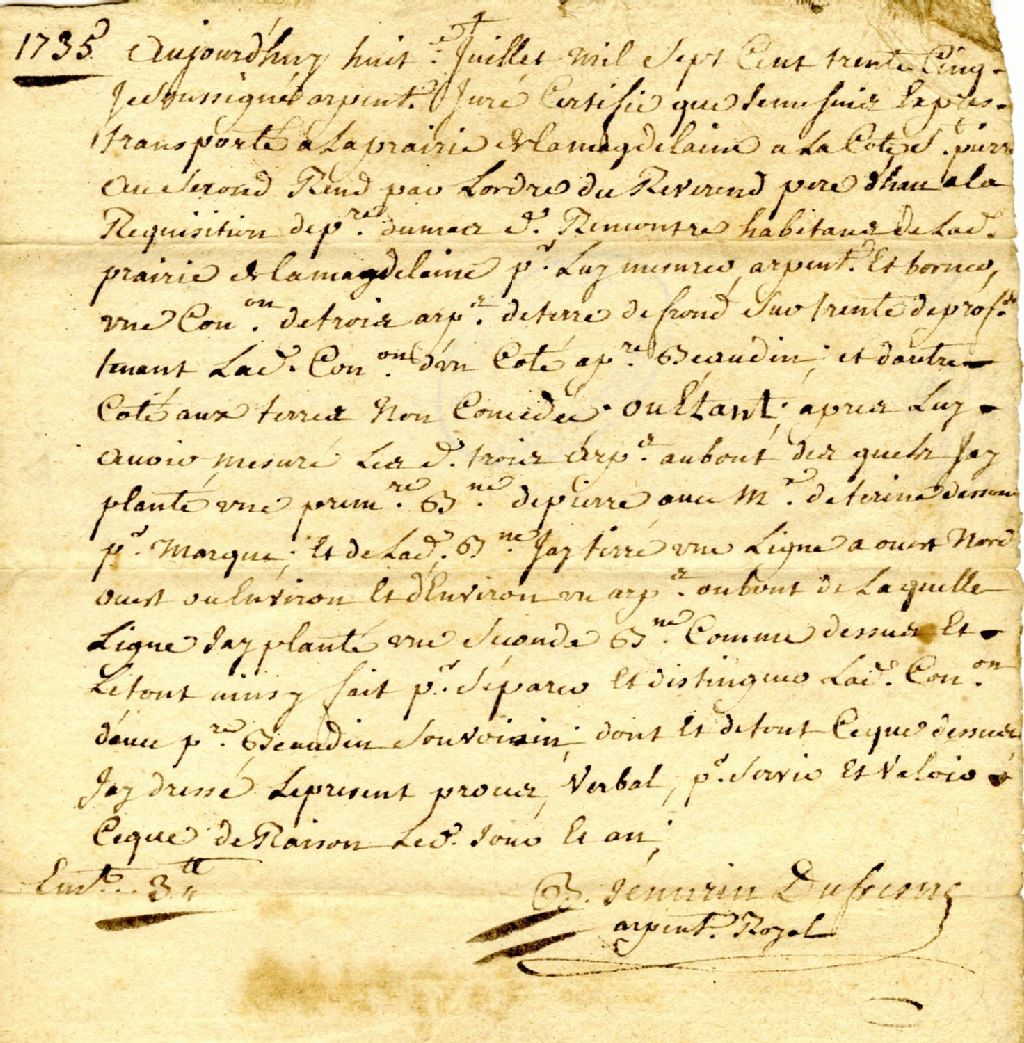 1735 Aujourd'huy huit.e Juillet mil Sept Cent trente Cinq
Je Soussigné arpent.r Juré Certifie que Jeme suis Expres
transporté a Laprairie de lamagdelaine a La Cote St. pierre
au Second Rend par Lordre du Reverend pere d'hau ala
Requisition depre. dumas dt. Rencontre habitans de Lad.
prairie de lamagdelaine pr. Luy mesurer, arpent.r Et borner,
vne Con.on detrois arp.s deterre de frond Sur trente deprof.r
tenant Lad. Con.on d'vn Coté apre. Beaudin; et dautre
Coté aux terres Non Concedée ou Etant; apres Luy
avoir mesuré Les d. trois Arp.s aubout des quels Jay
planté vne prem.re B.ne depierre avec M.r de terine dessous
pr. Marque; Et deLad. B.ne Jay tirré vne Ligne a ouest Nord
ouest ou Environ Et d'Environ vn arp.s au bout de Laquelle
Ligne Jay planté vne Seconde B.ne Comme dessus Et
Letout ainsy fait pr. Séparer Et distinguer Lad. Con.on
d'avec pre. Beaudin Son voisin; dont Et detout Ceque dessus
Jay dressé Lepresent procez, Verbal, pr. Servir Et Valoir a
Ceque de Raison Led. Jour Et an;
3tt
B. Jenvrin Dufresne
arpent.r Royal